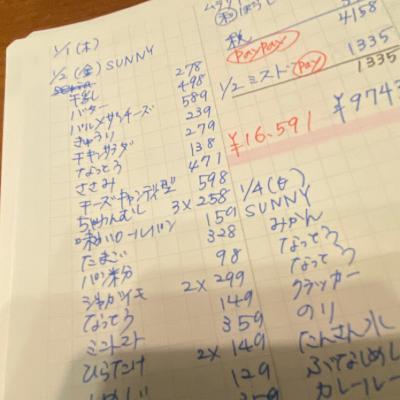 1/1(木)
1/2(金) SUNNY
278
バター 498
パルメザンチーズ 589
きゅうり 239
チキンサラダ 279
なっとう 138
ささみ 471
チーズキャンディ型 598
ちゃわんむし 3×258
ロールパン 159
たまご 328
パン粉 98
ジャガイモ 2×299
なっとう 149
ミニトマト 359
ひらたけ 2×149
しめじ 129
359
4158
PayPay 1335
1/2 ミスト Pay 1335
¥16.591 ¥9743
1/4(日)
SUNNY
みかん
なっとう
なっとう
クラッカー
のり
たんさん水
ぶなしめじ
カレールー